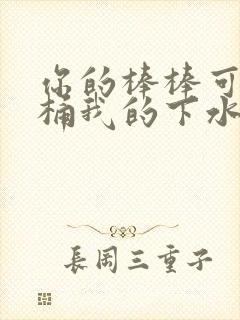 你的棒棒可
桶我的下水
長岡三重子